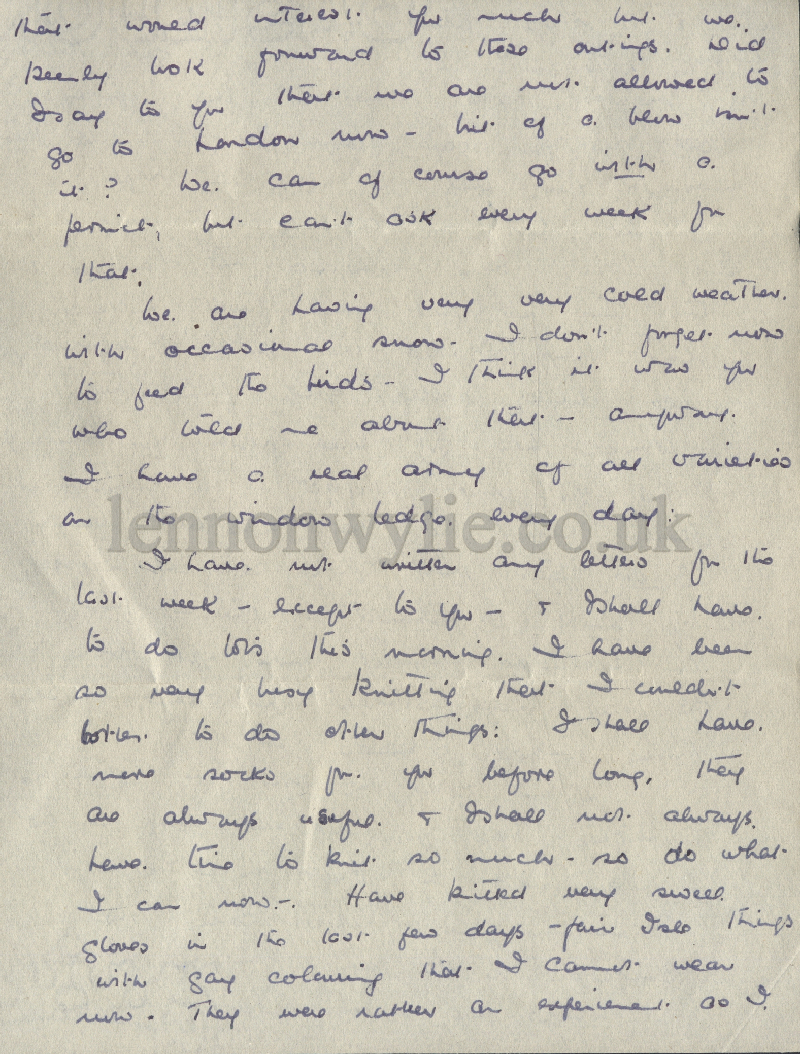 that would interest you much but we
keenly look forward to these outings. Did
I say to you that we are not allowed to
go to London now - bit of a blow isn't
it? We can of course go with a
permit, but can't ask every week for
that.
We are having very very cold weather.
with occasional snow - I don't forget now
to feed the birds - I think it was you
who told me about that - anyway.
I have a real army of all varieties
on the window ledge every day:
lennonwylie.co.uk
I have not written any letters for the
last week - except to you - & I shall have
to do lots this morning. I have been
so very busy knitting that I couldn't
bother to do other things: I shall have
more socks for you before long, they
are always useful & I shall not always
have time to knit so much - so do what
I can now -. Have knitted very swell
gloves in the last few days - fair Isle things
with gay colouring that I cannot wear
now. They were rather an experiment as I